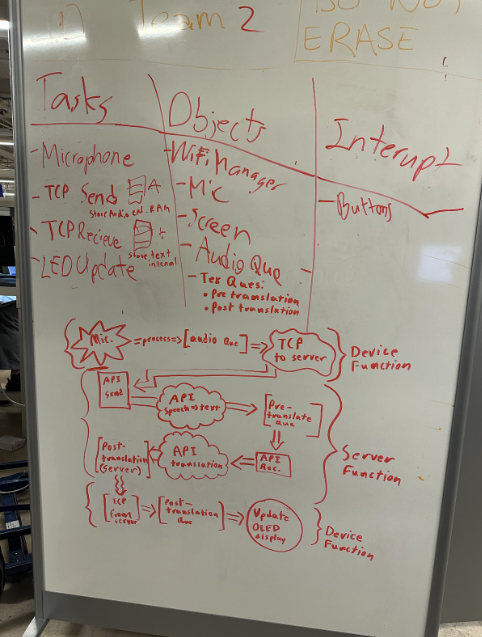 Team 2
DO NOT
ERASE
Tasks
Objects
Interupt
-Microphone
-TCP Send
A
Store Audio Ext. RAM
-TCP Recieve
t
Store text
internal
-LED Update
-WiFi Manager
-Mic
-Screen
-Audio Que
-Tex Ques:
• Pre translation
• Post translation
-Buttons
Mic.
=process=>
[audio Que]
TCP
to server
Device
Function
API
Send
API
Speech=>text
Pre-
translate
Que
API
Rec.
API
translation
[Post-
translation
(Server)]
Server
Function
TCP
from
server
[Post-
translation
Que]
Update
OLED
display
Device
Function